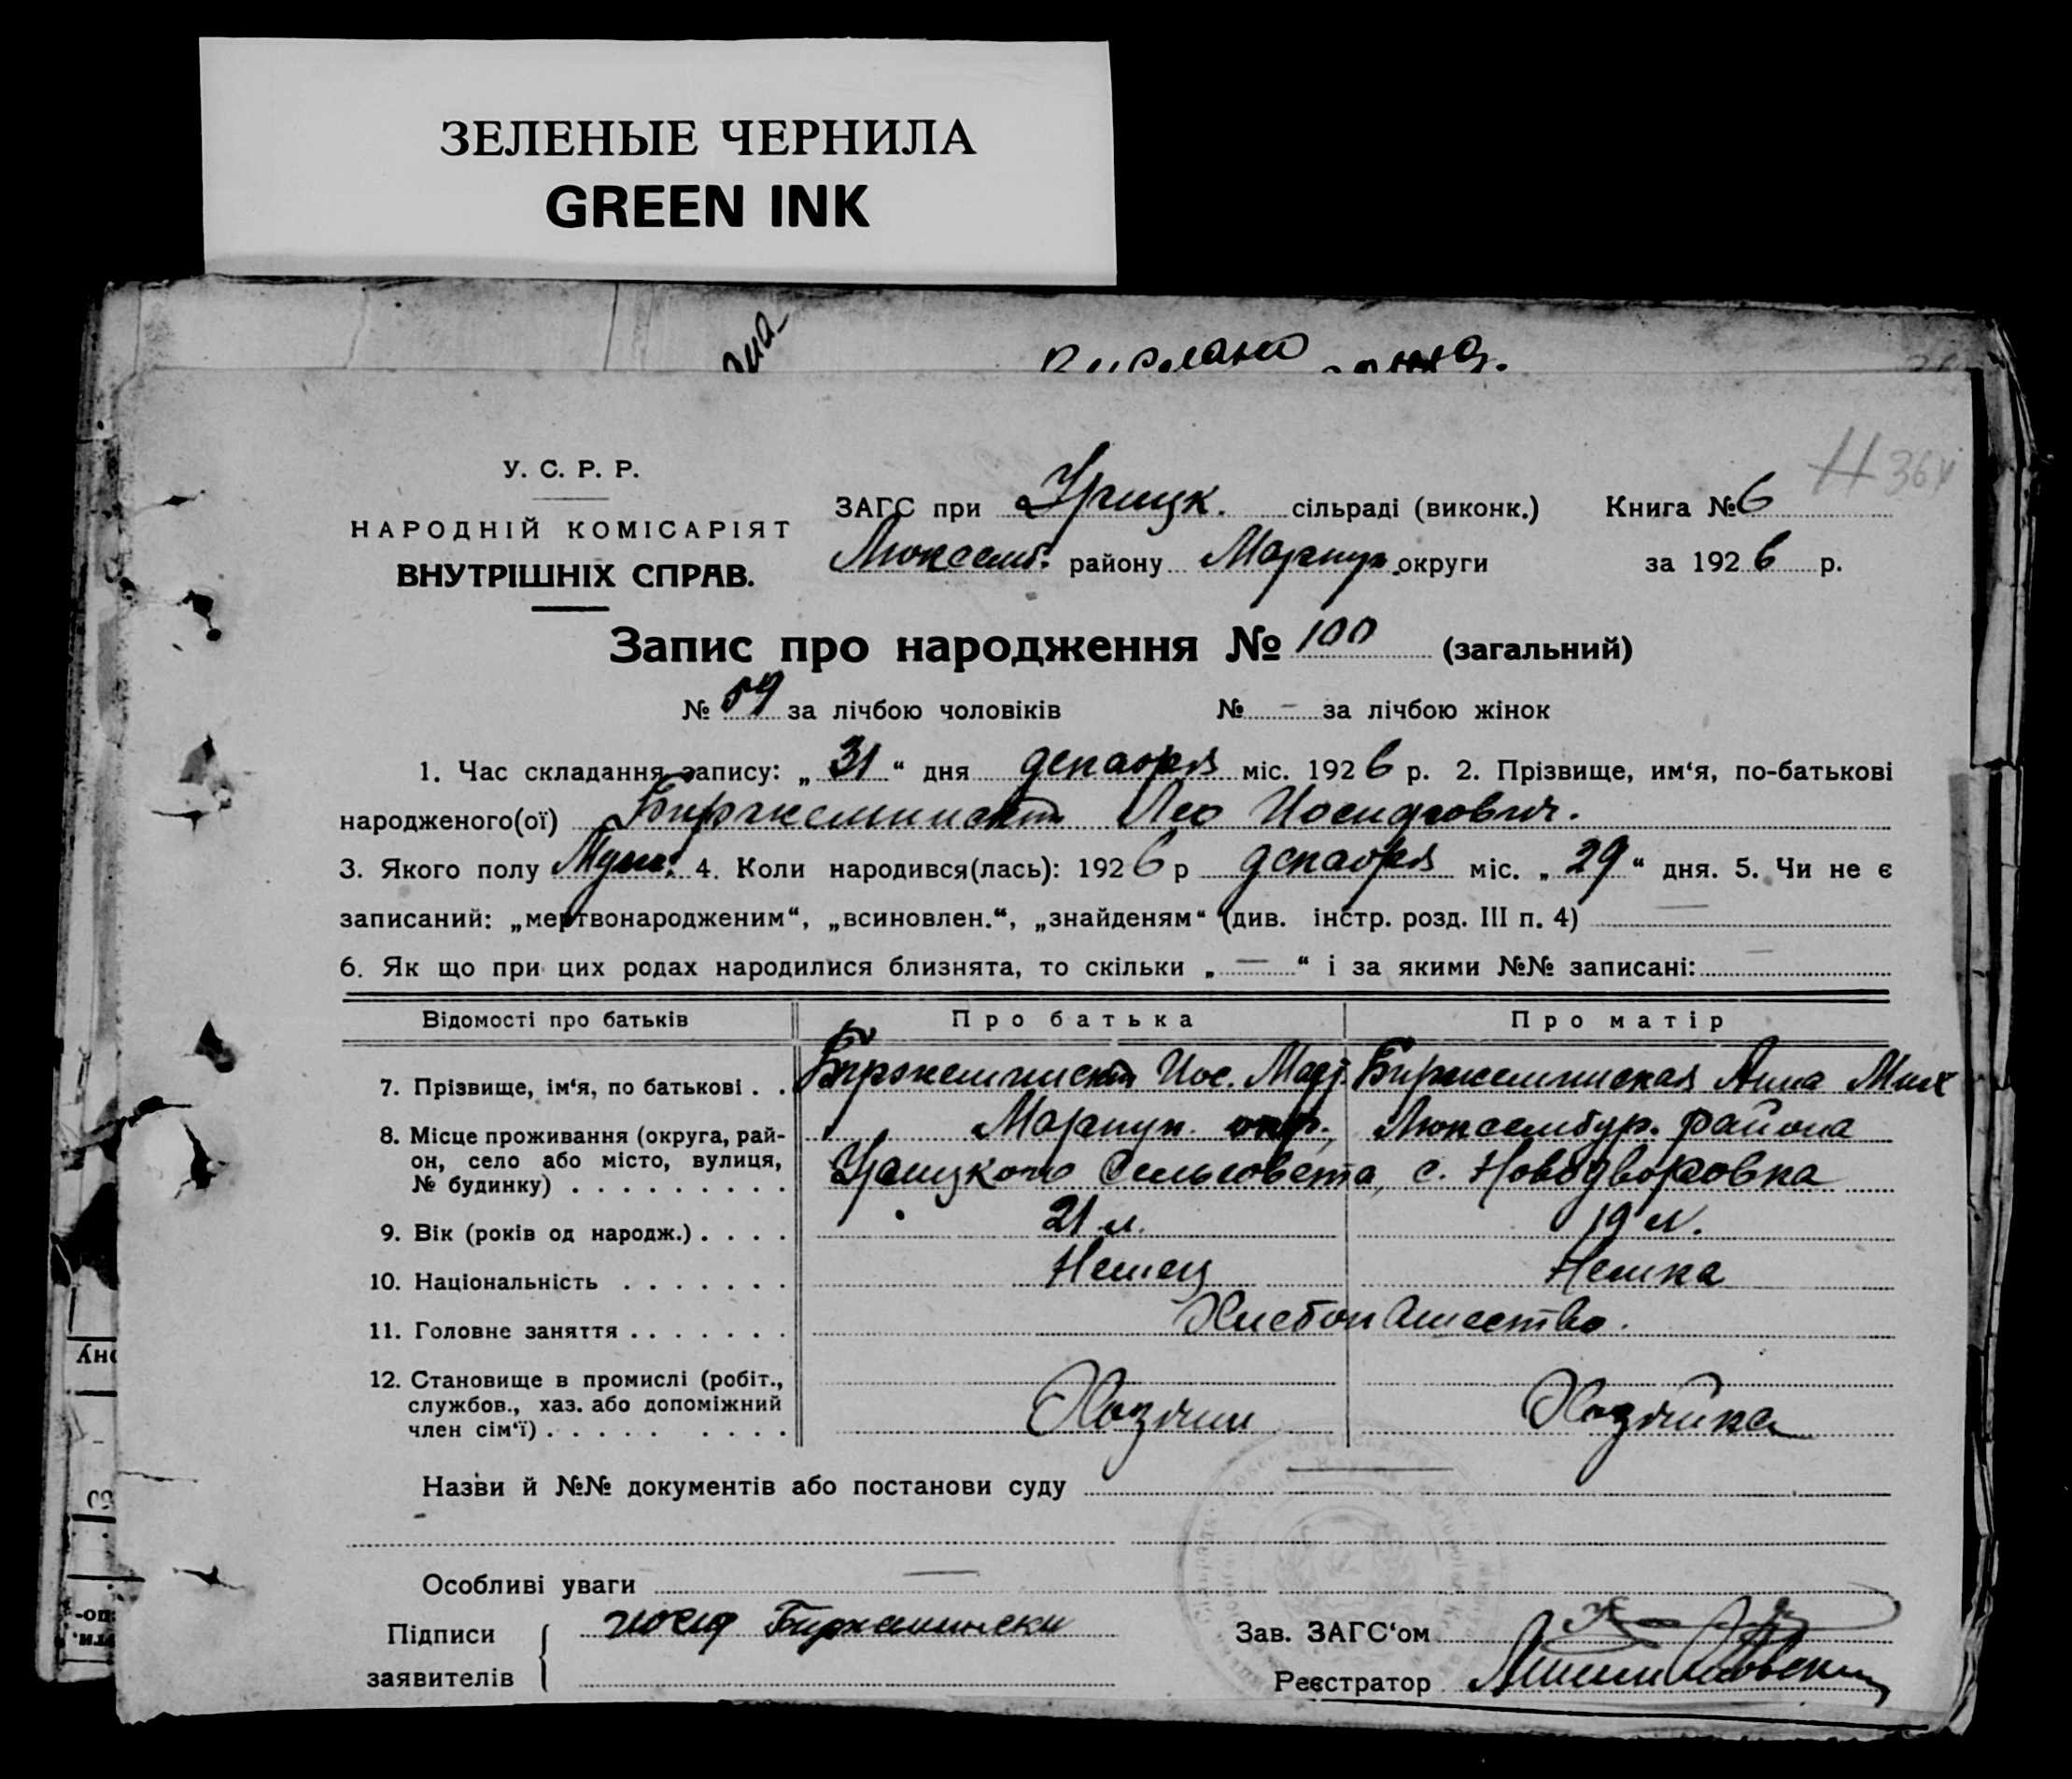 ЗЕЛЕНЫЕ ЧЕРНИЛА
GREEN INK
У. С. Р. Р.
НАРОДНІЙ КОМІСАРІЯТ
ВНУТРІШНІХ СПРАВ.
ЗАГС при Урицк. сільраді (виконк.) Книга № 6
Люксемб. району Мариуп. округи за 1926 р.
364
Запис про народження № 100 (загальний)
№ 59 за лічбою чоловіків № - за лічбою жінок
1. Час складання запису: „ 31 “ дня декабря міс. 1926 р. 2. Прізвище, им‘я, по-батькові
народженого(ої) Лео Иосифович.
3. Якого полу Муж. 4. Коли народився(лась): 1926 р декабря міс. „ 29 “ дня. 5. Чи не є
записаний: „мертвонародженим“, „всиновлен.“, „знайденям“ (див. інстр. розд. III п. 4) —
6. Як що при цих родах народилися близнята, то скільки „ — “ і за якими №№ записані: —
Відомості про батьків Про батька Про матір
7. Прізвище, ім‘я, по батькові . . Иос. Анна Мих
8. Місце проживання (округа, рай- Мариуп. окр., Люксембур. района
он, село або місто, вулиця, Урицкого Сельсовета, с. Новодворовка
№ будинку) . . . . . . . . .
9. Вік (років од народж.) . . . . 21 л. 19 л.
10. Національність . . . . . . . Немец Немка
11. Головне заняття . . . . . . . Хлебопашество.
12. Становище в промислі (робіт.,
службов., хаз. або допоміжний Хозяин Хозяйка
член сім‘ї) . . . . . . . . .
Назви й №№ документів або постанови суду —
Особливі уваги —
Підписи Зав. ЗАГС‘ом
заявителів Реєстратор